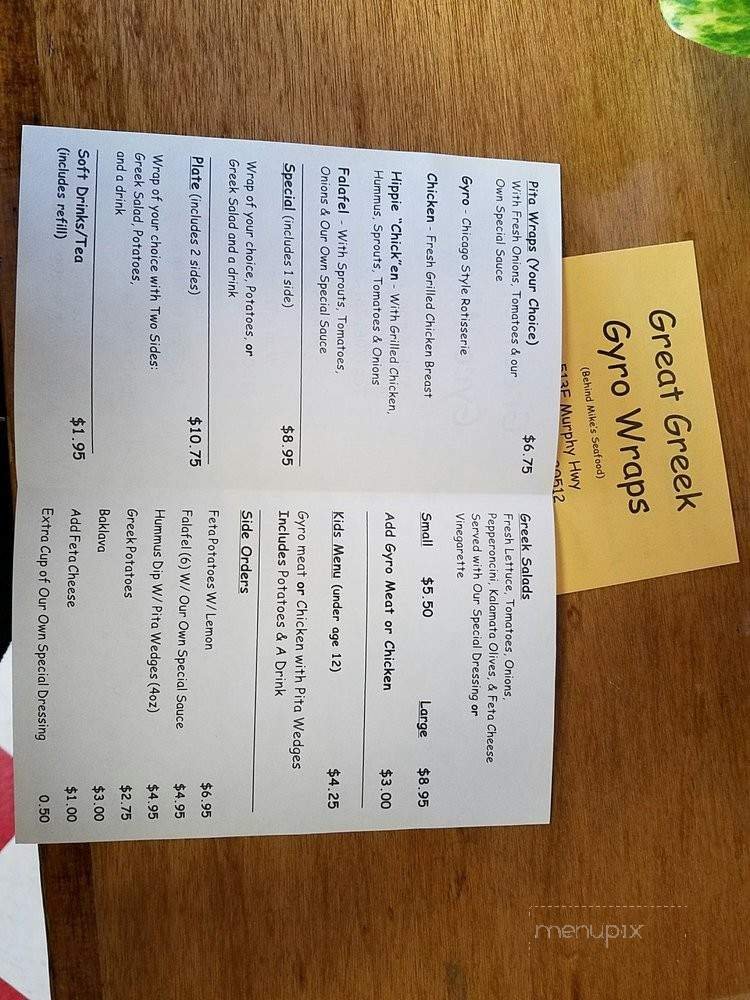 Great Greek
Gyro Wraps
(Behind Mike's Seafood)
Murphy Hwy
Pita Wraps (Your Choice)
With Fresh Onions, Tomatoes & our
Own Special Sauce
$6.75
Gyro - Chicago Style Rotisserie
Chicken - Fresh Grilled Chicken Breast
Hippie "Chick"en - With Grilled Chicken,
Hummus, Sprouts, Tomatoes & Onions
Falafel - With Sprouts, Tomatoes,
Onions & Our Own Special Sauce
Special (includes 1 side) $8.95
Wrap of your choice, Potatoes, or
Greek Salad and a drink
Plate (includes 2 sides) $10.75
Wrap of your choice with Two Sides:
Greek Salad, Potatoes,
and a drink
Soft Drinks/Tea $1.95
(includes refill)
Greek Salads
Fresh Lettuce, Tomatoes, Onions,
Pepperoncini, Kalamata Olives, & Feta Cheese
Served with Our Special Dressing or
Vinegarette
Small $5.50 Large $8.95
Add Gyro Meat or Chicken $3.00
Kids Menu (under age 12) $4.25
Gyro meat or Chicken with Pita Wedges
Includes Potatoes & A Drink
Side Orders
Feta Potatoes W/ Lemon $6.95
Falafel (6) W/ Our Own Special Sauce $4.95
Hummus Dip W/ Pita Wedges (4oz) $4.95
Greek Potatoes $2.75
Baklava $3.00
Add Feta Cheese $1.00
Extra Cup of Our Own Special Dressing 0.50
menupix